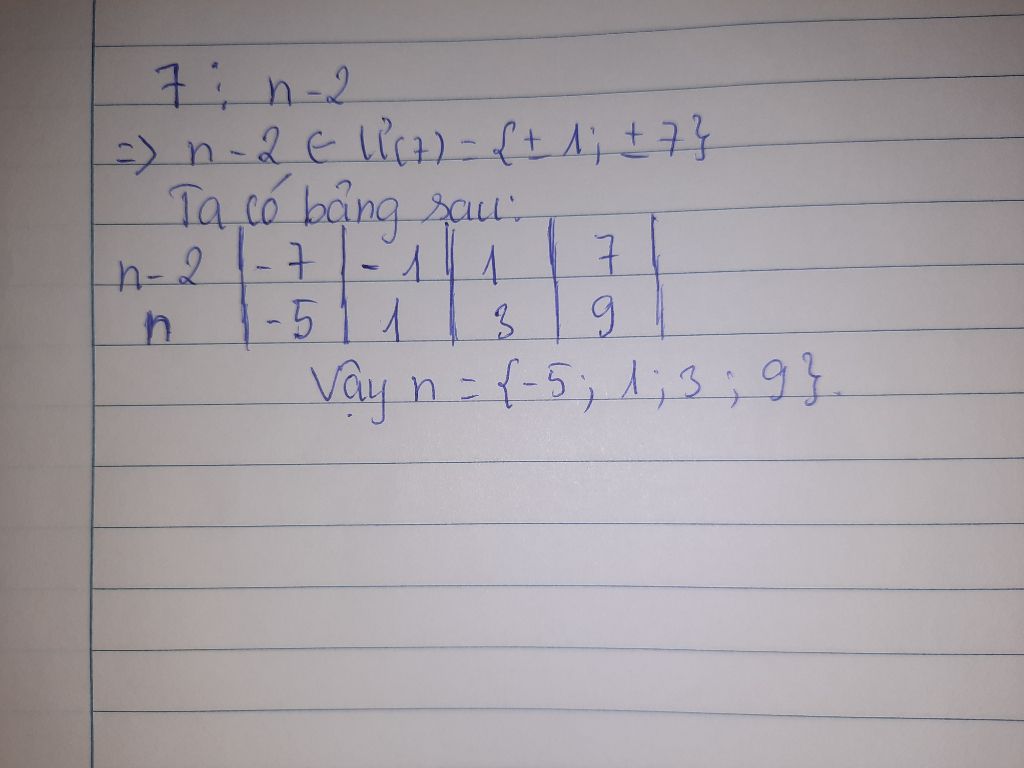 7 ⋮ n-2
=> n-2 ∈ Ư(7) = {± 1; ± 7}
Ta có bảng sau:
n-2 | -7 | -1 | 1 | 7 |
n | -5 | 1 | 3 | 9 |
Vậy n = {-5; 1; 3; 9}.